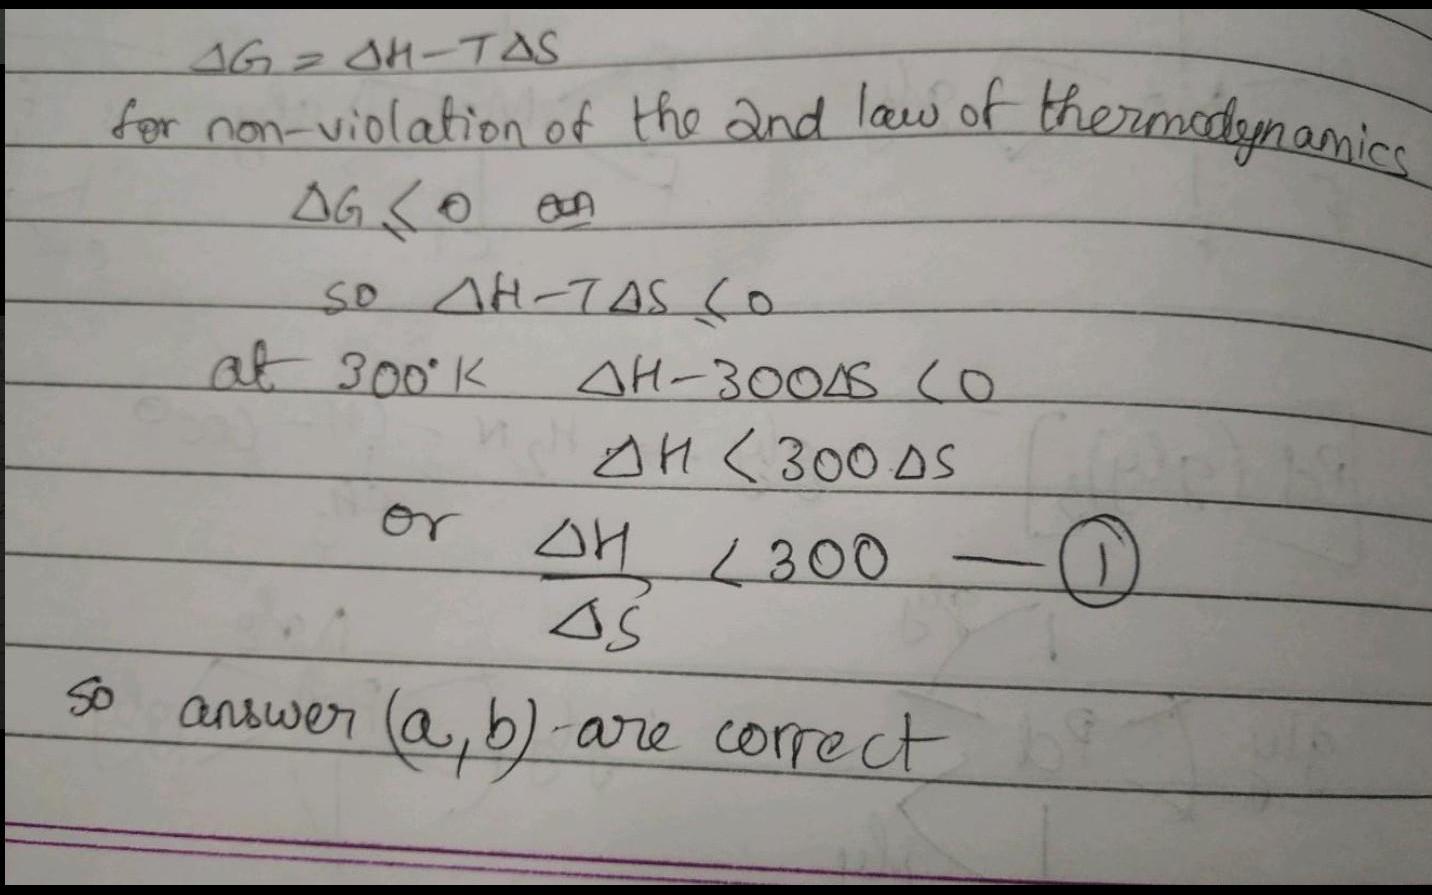 ΔG = ΔH-TΔS
for non-violation of the 2nd law of thermodynamics
ΔG ≤ 0
so ΔH-TΔS ≤ 0
at 300°K ΔH-300ΔS < 0
ΔH < 300 ΔS
or ΔH/ΔS < 300 — ①
so answer (a, b) are correct